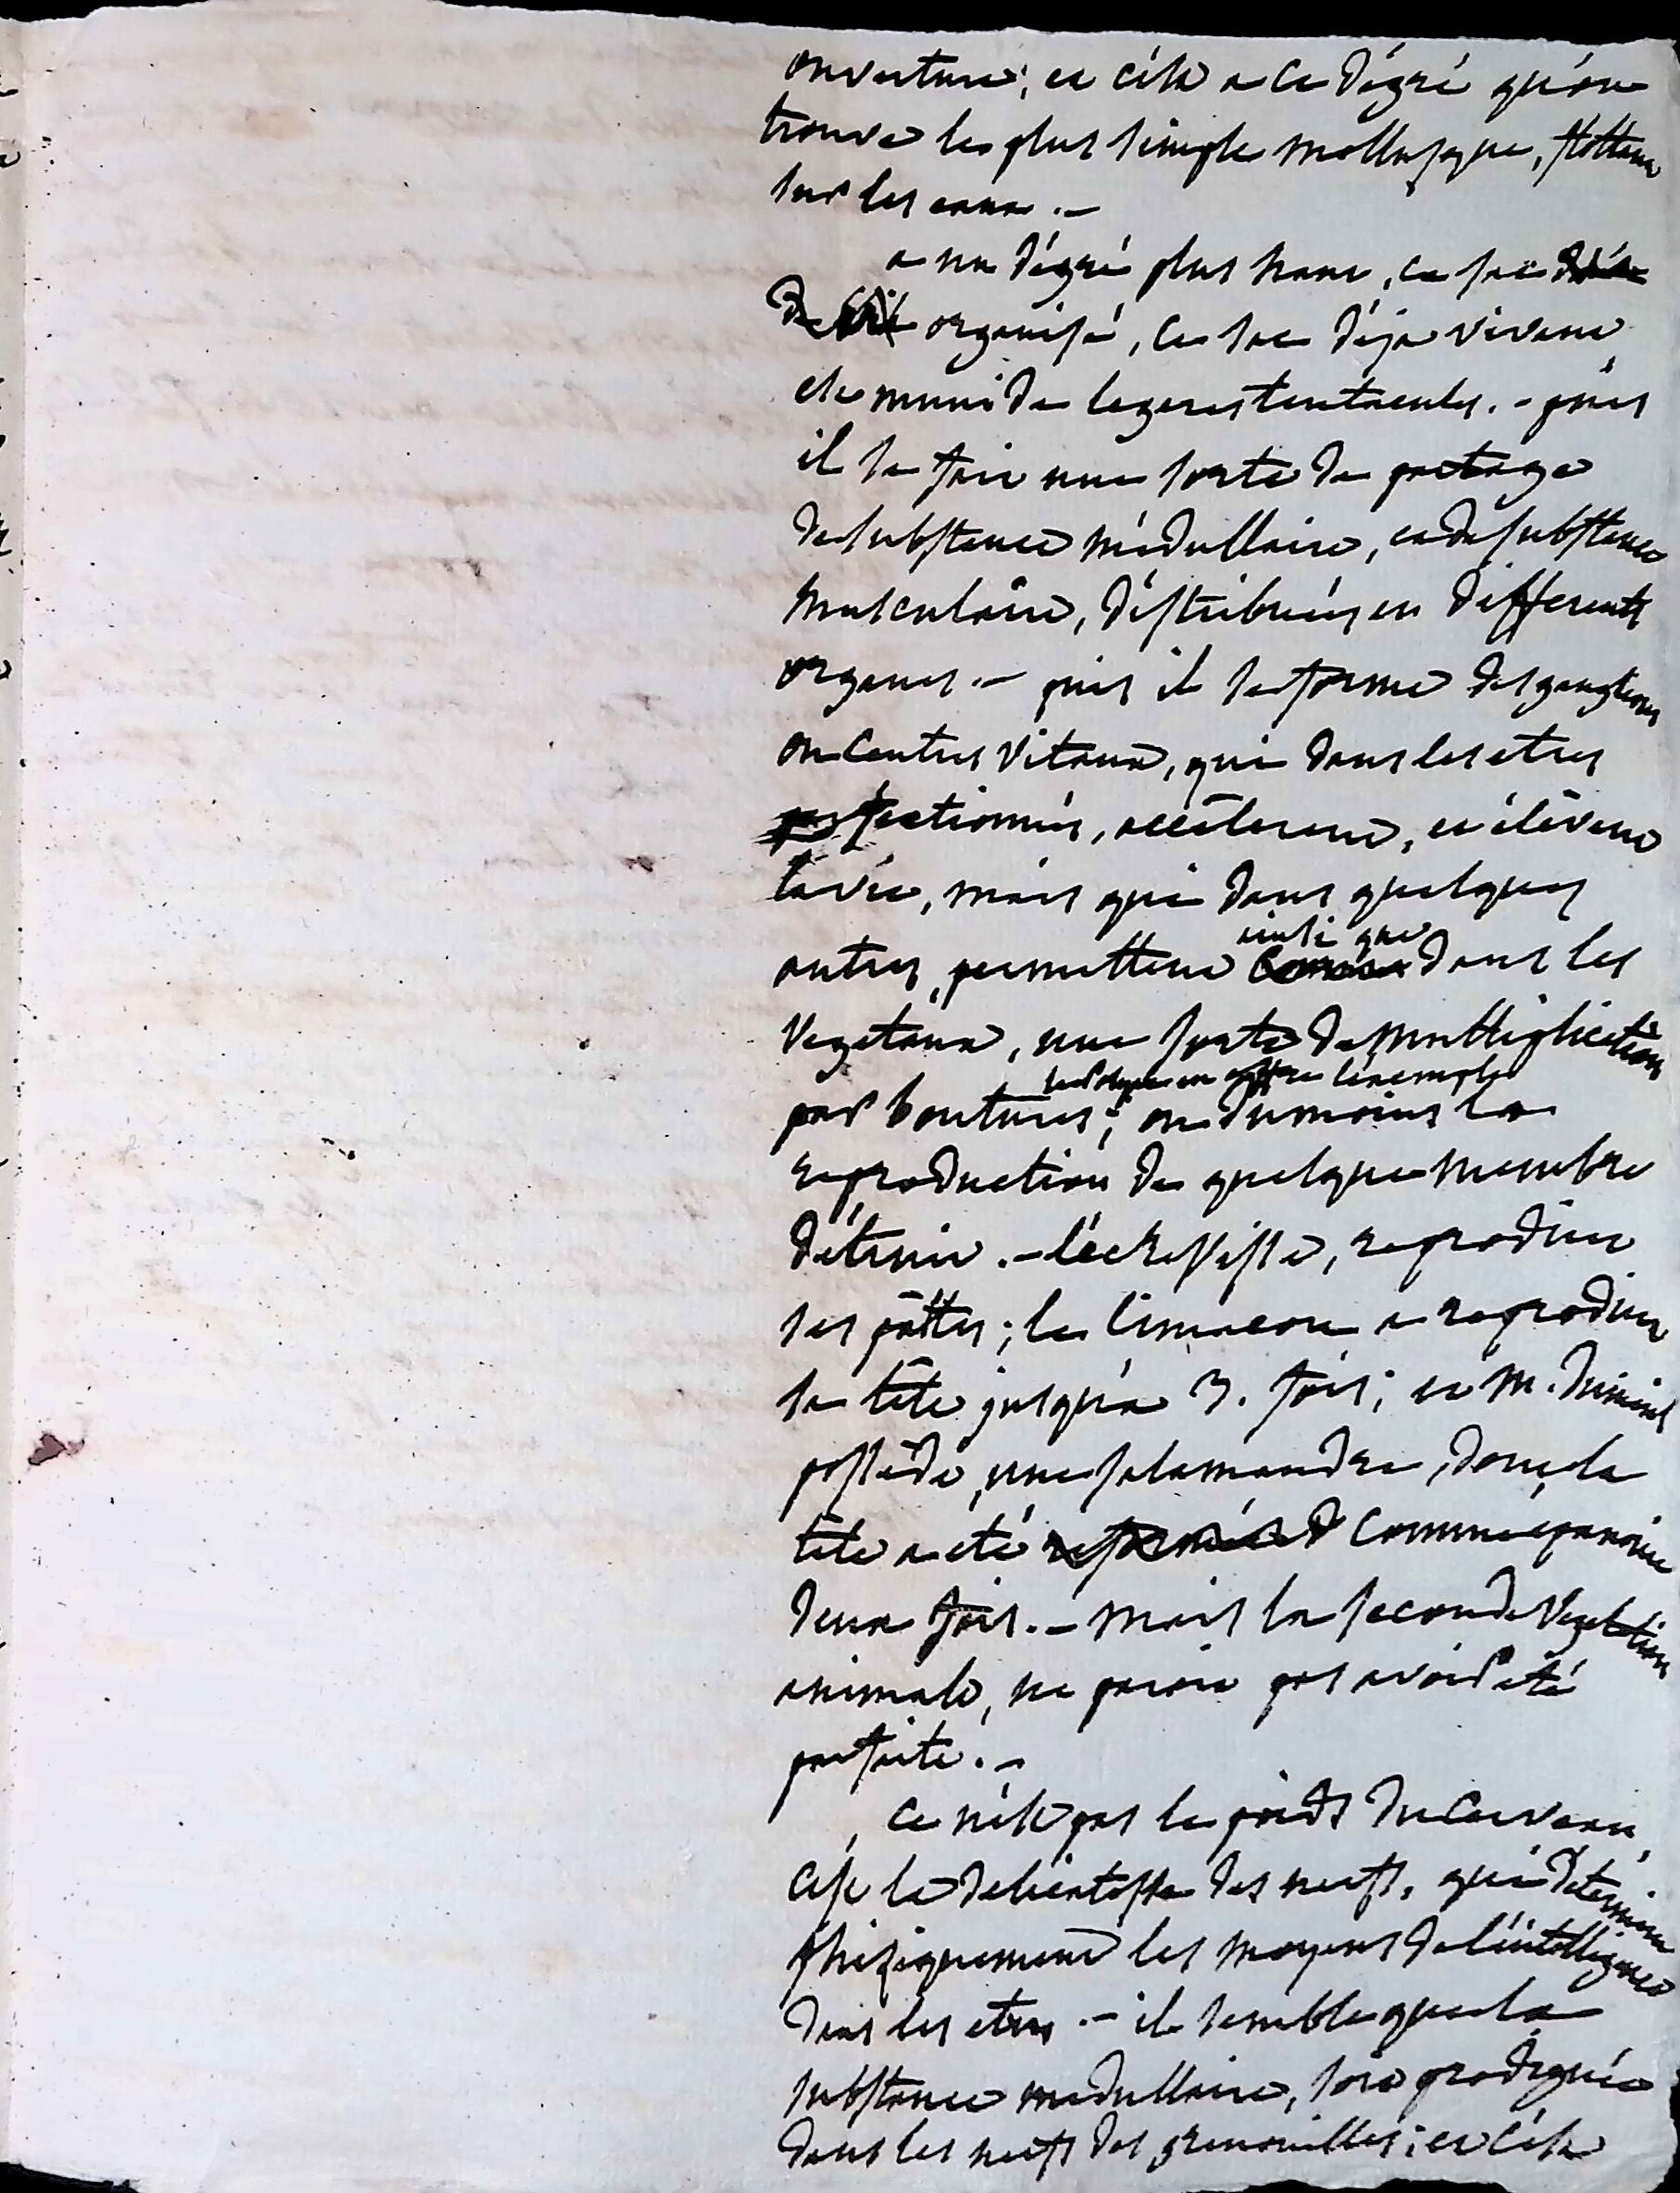 ouverture; et c'est a ce dégré qu'on
trouve le plus simple mollusque, flottant
sur les eaux. -
a un dégré plus haut, ce sac
organisé, ce sac déja vivant
est muni de legeres tentacules. - puis
il se fait une sorte de partage
de substance médullaire, et de substance
musculaire, distribuées en differents
organes. - puis il se forme des ganglions
ou centres vitaux, qui dans les etres
perfectionnés, accélerent, et élévent
la vie, mais qui dans quelques
ainsi que
autres, permettent dans les
vegetaux, une sorte de multiplication
le Polype en offre l'exemple
par boutures; ou du moins la
reproduction de quelque membre
détruit. - l'écrevisse, reproduit
ses pattes; le limacon a reproduit
sa tête jusqu'a 3. fois; et M. Dumeril
possède, une salamandre, dont la
tête a eté comme epanouie
deux fois. - mais la seconde vegetation
animale, ne paroit pas avoir eté
parfaite. -
ce n'est pas le poids du cerveau,
c'est la delicatesse des nerfs, qui détermine
phisiquement les moyens de l'intelligence
dans les etres. - il semble que la
substance medullaire, soit prodiguée
dans les nerfs des grenouilles; et c'est